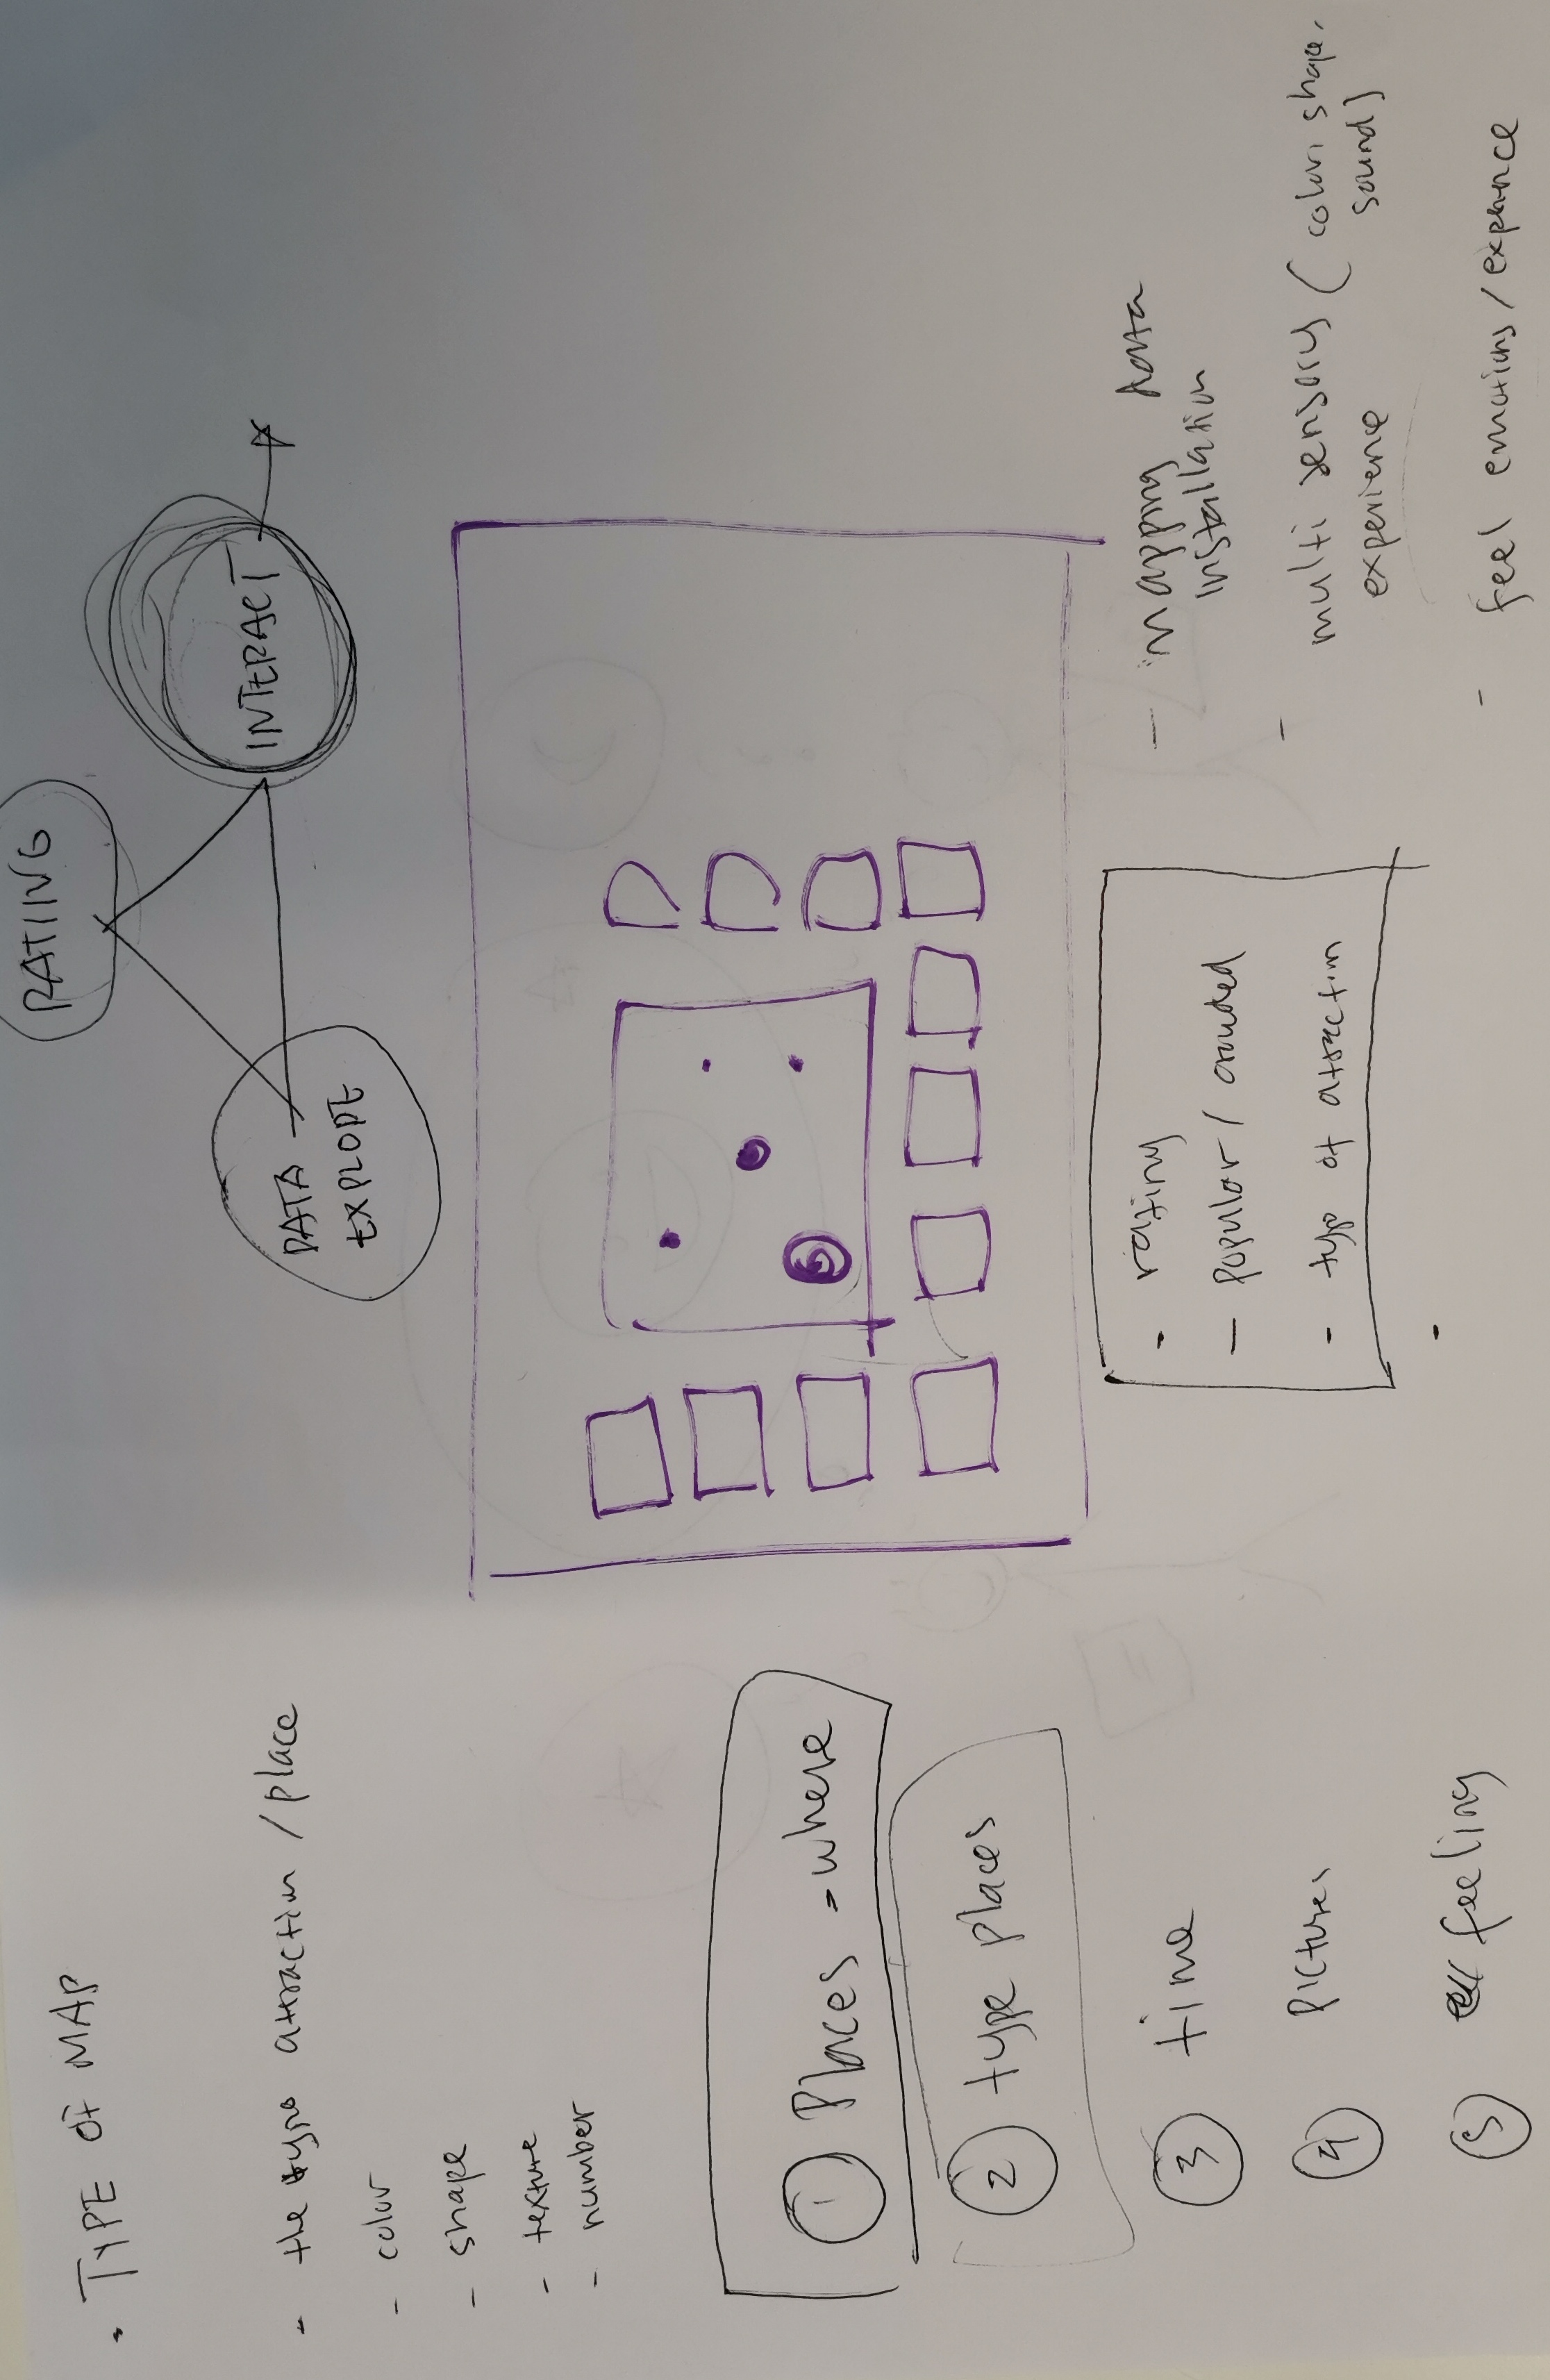 • TYPE of MAP
- the type attraction / place
- color
- shape
- texture
- number
① Places = where
② type places
③ time
④ pictures
⑤ feeling
RATING
DATA -
EXPLODE
INTERACT
- rating
- popular / crowded
- type of attraction
- mapping data
installation
- multi sensory ( color, shape,
sound )
experience
- feel emotions / experience